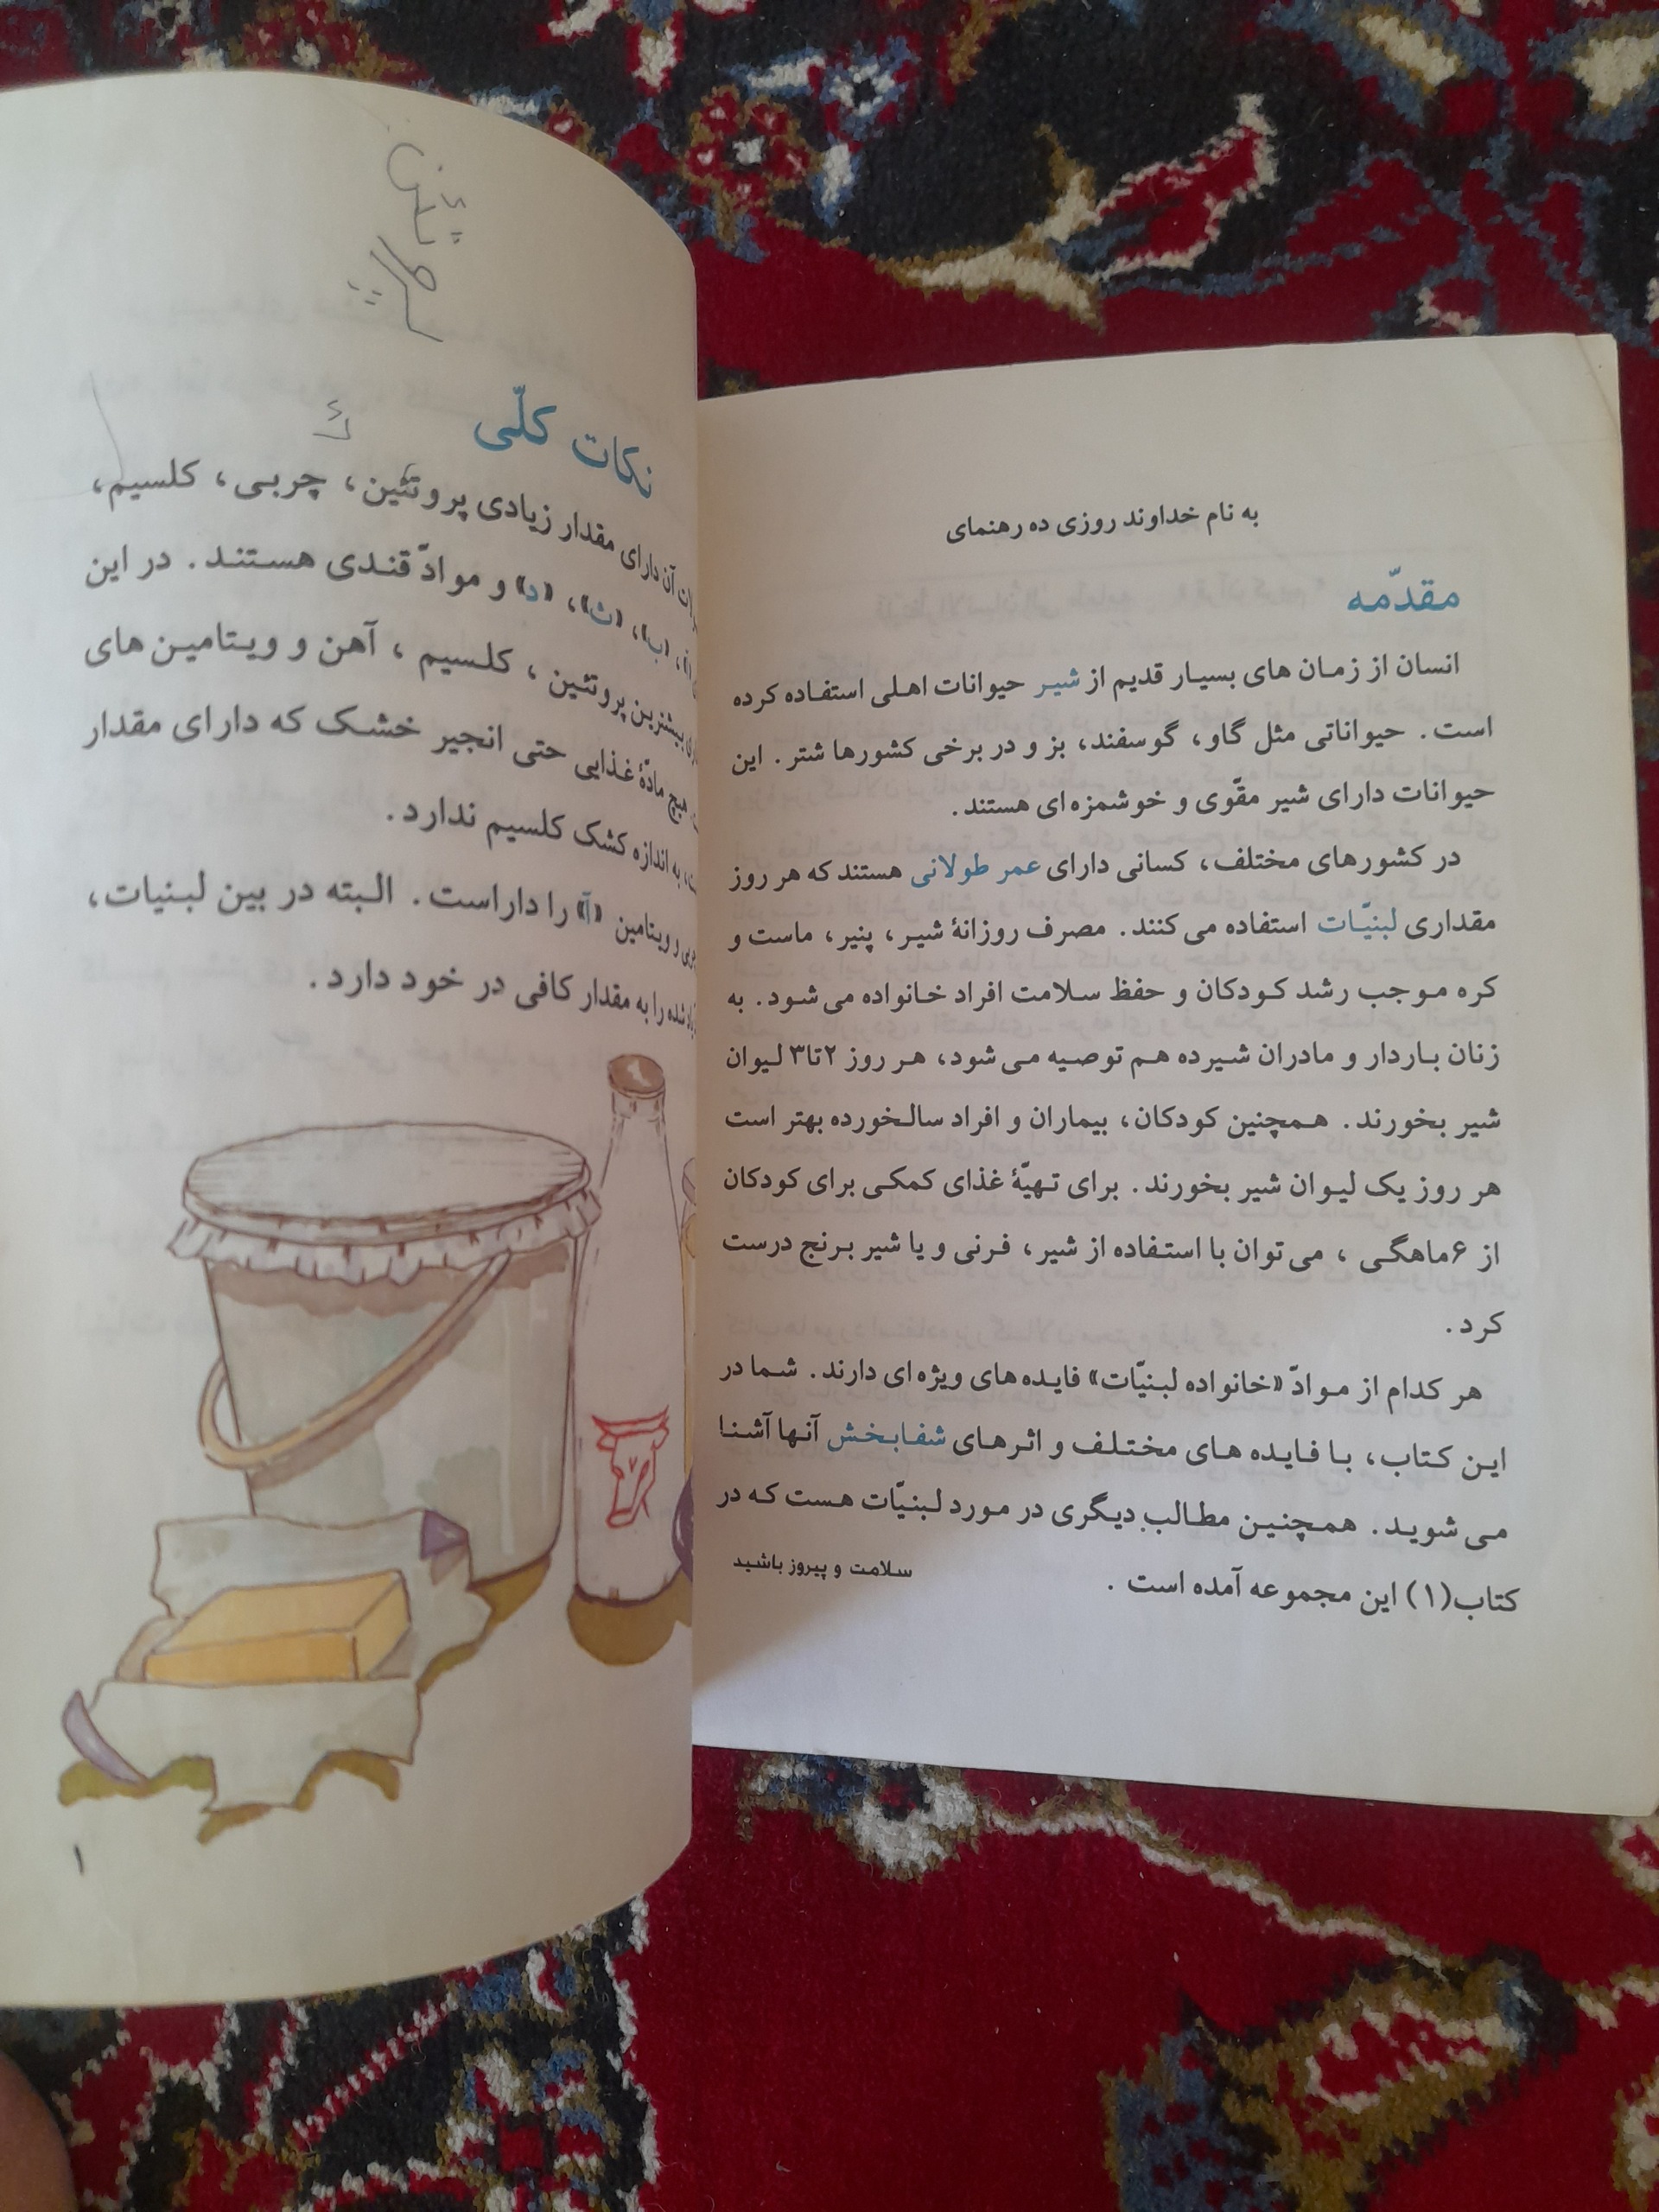 به نام خداوند روزی ده رهنمای
مقدّمه
انسان از زمان های بسیار قدیم از شیر حیوانات اهلی استفاده کرده
است. حیواناتی مثل گاو، گوسفند، بز و در برخی کشورها شتر. این
حیوانات دارای شیر مقّوی و خوشمزه ای هستند.
در کشورهای مختلف، کسانی دارای عمر طولانی هستند که هر روز
مقداری لبنیّات استفاده می کنند. مصرف روزانهٔ شیر، پنیر، ماست و
کره موجب رشد کودکان و حفظ سلامت افراد خانواده می شود. به
زنان باردار و مادران شیرده هم توصیه می شود، هر روز ۲تا۳ لیوان
شیر بخورند. همچنین کودکان، بیماران و افراد سالخورده بهتر است
هر روز یک لیوان شیر بخورند. برای تهیّهٔ غذای کمکی برای کودکان
از ۶ماهگی ، می توان با استفاده از شیر، فرنی و یا شیر برنج درست
کرد.
هر کدام از موادّ «خانواده لبنیّات» فایده های ویژه ای دارند. شما در
این کتاب، با فایده های مختلف و اثرهای شفابخش آنها آشنا
می شوید. همچنین مطالب دیگری در مورد لبنیّات هست که در
کتاب(۱) این مجموعه آمده است .
سلامت و پیروز باشید
نکات کلّی
آن دارای مقدار زیادی پروتئین، چربی، کلسیم،
«ب»، «ث»، «د» و موادّ قندی هستند. در این
بیشترین پروتئین ، کلسیم ، آهن و ویتامین های
هیچ مادّهٔ غذایی حتی انجیر خشک که دارای مقدار
به اندازه کشک کلسیم ندارد.
و ویتامین «آ» را داراست. البته در بین لبنیات،
شده را به مقدار کافی در خود دارد.
۱